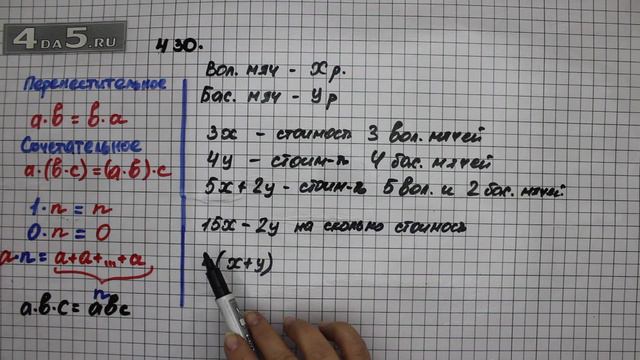 4DA5.RU
430.
Переместительное
a·b = b·a
Сочетательное
a·(b·c)=(a·b)·c
1·n = n
0·n = 0
a·n = a+a+...+a
n
a·b·c = abc
Вол. мяч - Xр.
Бас. мяч - Ур
3x - стоимость 3 вол. мячей
4y - стоим-ть 4 бас. мячей
5x+2y - стоим-ть 5 вол. и 2 бас. мячей
15x - 2y на сколько стоимость
(x+y)